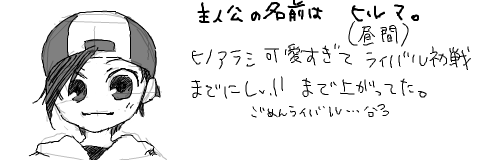 主人公の名前は ヒルマ。
(昼間)
ヒノアラシ可愛すぎて ライバル初戦
までにLv.11 まで上がってた。
ごめんライバル…